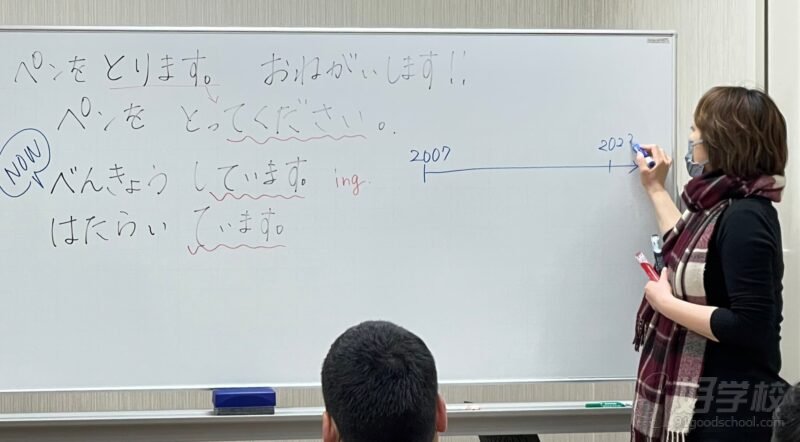 ペンを とります。 おねがいします!!
ペンを とってください。
NOW
べんきょう しています。 ing.
はたらい ています。
2007 2023
好学校
91goodschool.com